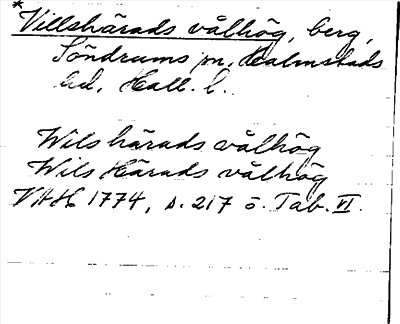 *Villshärads vålhög, berg,
Söndrums sn, Halmstads
hd, Hall. l.
Wils härads vålhög
Wils Härads vålhög
VAH 1774, s. 217 o. Tab. VI.